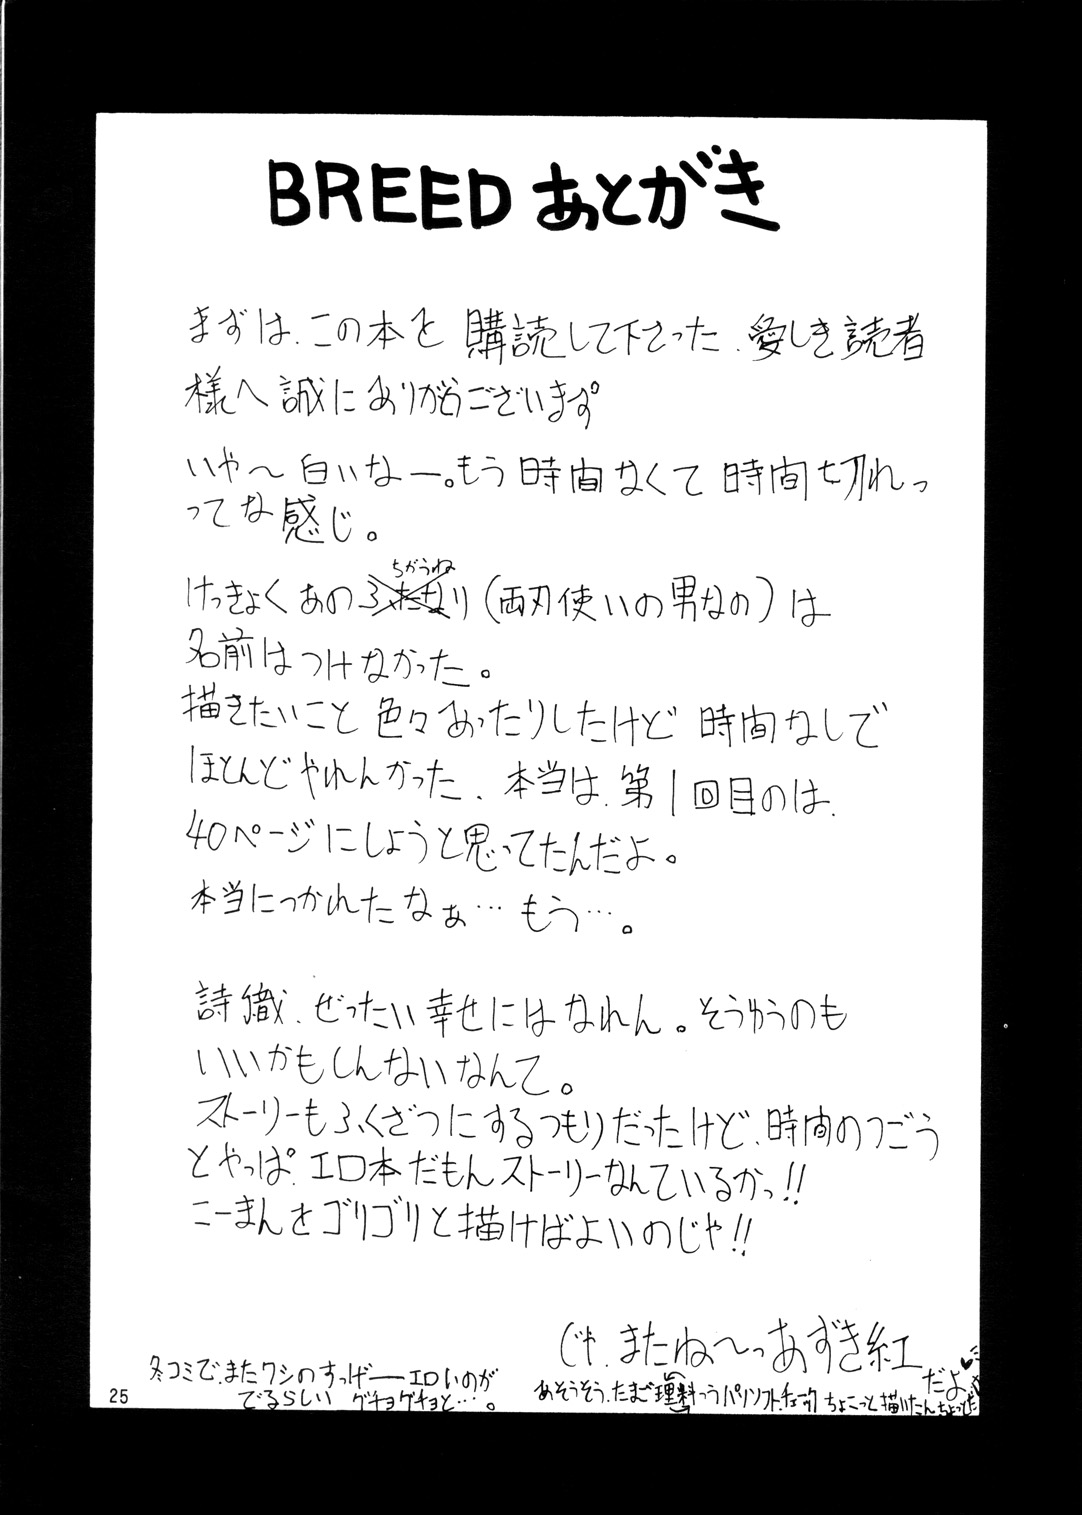 BREED あとがき
まずは、この本を 購読して下さった、愛しき読者
様へ 誠にありがとうございます。
いや〜 白いなー。もう 時間なくて 時間切れっ
ってな感じ。
ちがうね
けっきょく あの ふたなり (両刃使いの男なの)は
名前はつけなかった。
描きたいこと 色々あったりしたけど 時間なしで
ほとんどやれんかった、本当は、第1回目のは、
40ページにしようと思ってたんだよ。
本当につかれたなぁ… もう…。
詩織、ぜったい幸せにはなれん。そうゆうのも
いいかもしんないなんて。
ストーリーもふくざつにするつもりだったけど、時間のつごう
とやっぱ、エロ本だもんストーリーなんているかっ!!
こーまんをゴリゴリと描けばよいのじゃ!!
じゃ、またね〜っ あずき紅
だよ
冬コミで、またワシのすっげーエロいのが
でるらしい グチョグチョと…。
あそうそう、たまご理料っつうパソソフト、チェック ちょこっと描いたん ちょっとだ
25